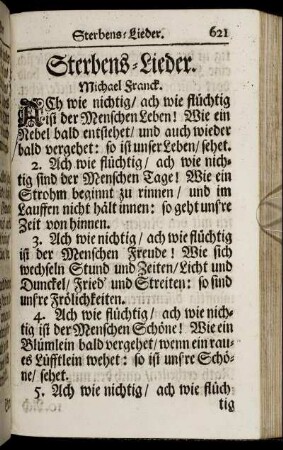 Sterbens-Lieder. 621
Sterbens-Lieder.
Michael Franck.
ACh wie nichtig/ ach wie flüchtig
ist der Menschen Leben! Wie ein
Nebel bald entstehet/ und auch wieder
bald vergehet: so ist unser Leben/ sehet.
2. Ach wie flüchtig/ ach wie nich-
tig sind der Menschen Tage! Wie ein
Strohm beginnt zu rinnen/ und im
Lauffen nicht hält innen: so geht unsre
Zeit von hinnen.
3. Ach wie nichtig/ ach wie flüchtig
ist der Menschen Freude! Wie sich
wechseln Stund und Zeiten/ Licht und
Dunckel/ Fried' und Streiten: so sind
unsre Frölichkeiten.
4. Ach wie flüchtig/ ach wie nich-
tig ist der Menschen Schöne! Wie ein
Blümlein bald vergehet/ wenn ein rau-
es Lüfftlein wehet: so ist unsre Schö-
ne/ sehet.
5. Ach wie nichtig/ ach wie flüch-
tig